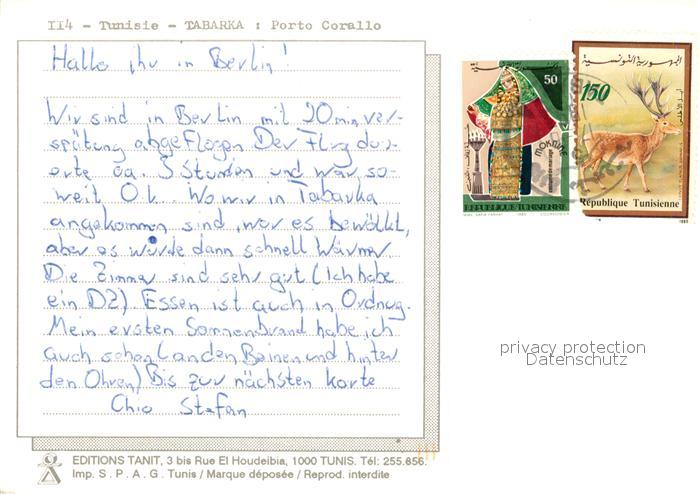 II4 - Tunisie - TABARKA : Porto Corallo
Hallo ihr in Berlin!
Wir sind in Berlin mit 20min ver-
spätung abgeflogen Der Flug du-
erte ca. 3 Stunden und war so-
weit O.k. Wo wir in Tabarka
angekommen sind, war es bewölkt,
aber es wurde dann schnell Wärmer
Die Zimmer sind sehr gut (Ich habe
ein DZ). Essen ist auch in Ordnug.
Mein ersten Sonnenbrand habe ich
auch schon (an den Beinen und hinter
den Ohren) Bis zur nächsten Karte
Chio Stefan
50
MOKNINE
REPUBLIQUE TUNISIENNE
الجمهورية التونسية
150
République Tunisienne
privacy protection
Datenschutz
EDITIONS TANIT, 3 bis Rue El Houdeibia, 1000 TUNIS. Tél: 255.656.
Imp. S . P . A . G . Tunis / Marque déposée / Reprod. interdite